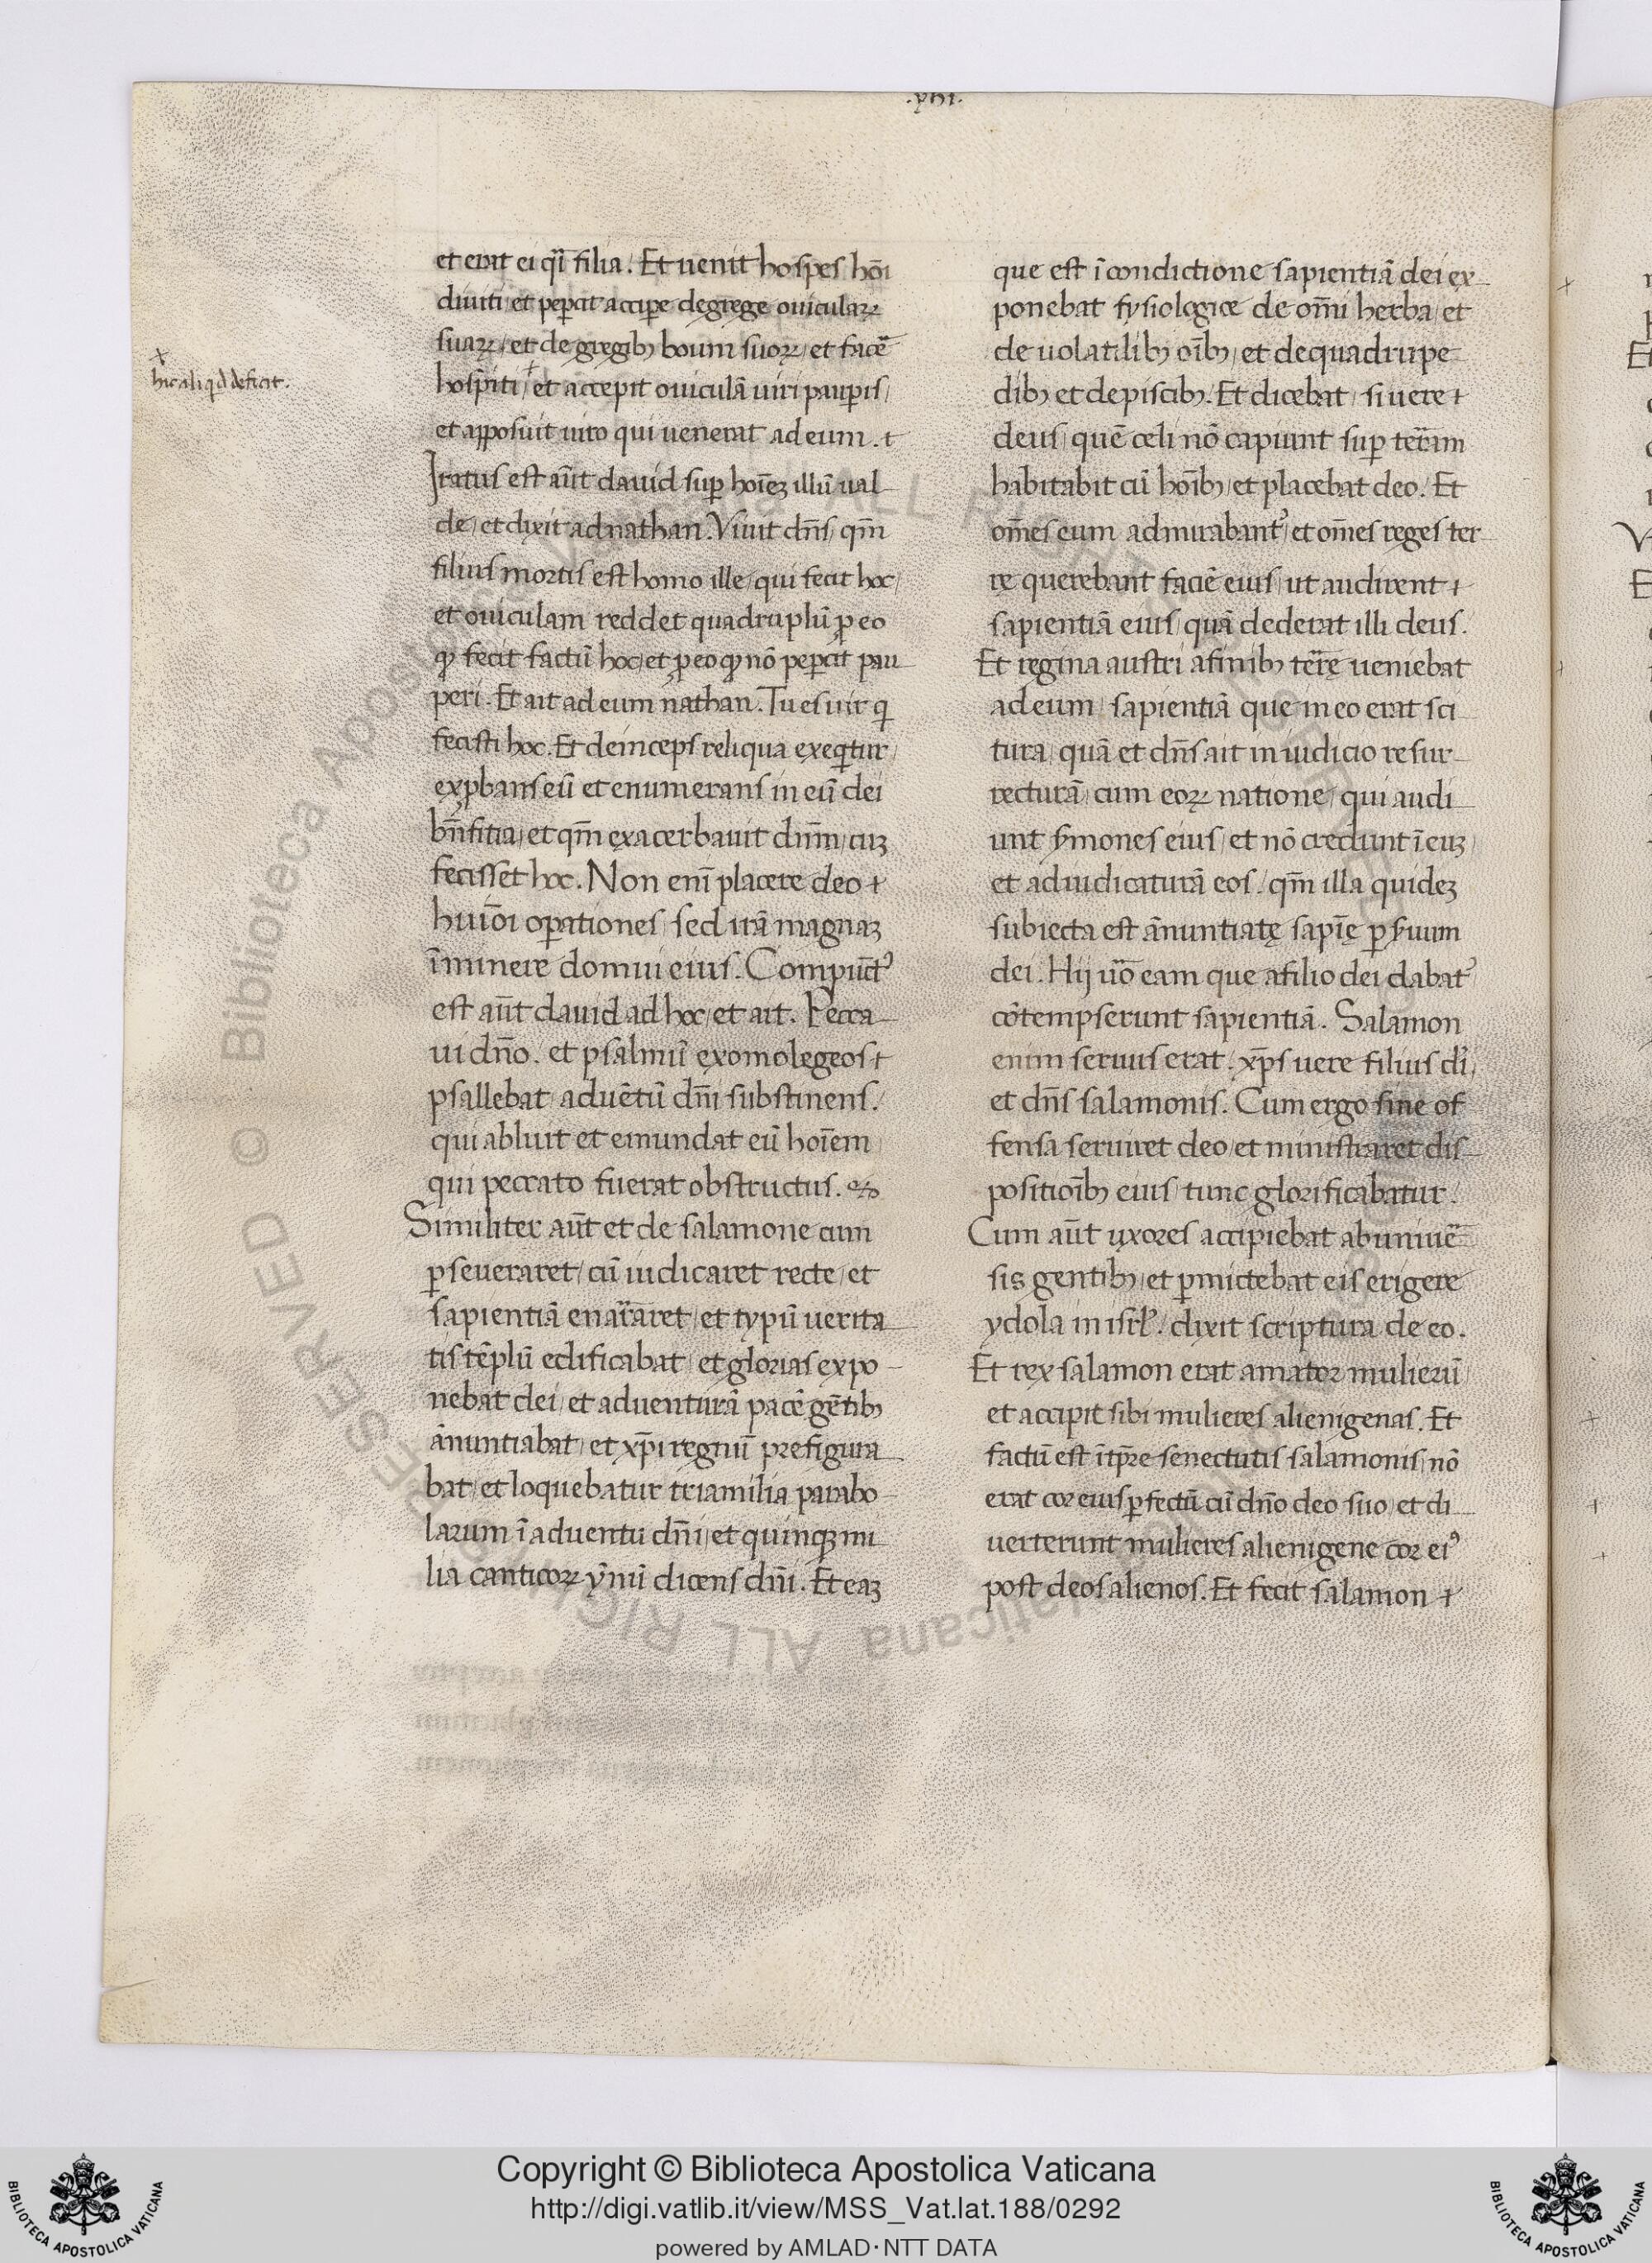 .xiiii.
et erat ei qͥi filia. Et uenit hospes hōi
diuiti et peꝑcit accipe degrege ouicularꝝ
suarꝝ, et de gregibꝫ boum suorꝝ, et facē
hospiti, et accepit ouiculā uiri paupis,
et apposuit uiro qui uenerat ad eum. t
Iratus est aūt dauid suꝑ hoīeꝫ illū ual
de, et dixit ad nathan. Viuit dn̄s, qm̄
filius mortis est homo ille, qui fecit hoc,
et ouiculam reddet quadruplū ꝓ eo
qꝫ fecit factū hoc, et ꝓ eo qꝫ nō peꝑcit pau
peri. Et ait ad eum nathan. Tu es uir q
fecisti hoc. Et deinceps reliqua exeqtur,
exꝓbans eū et enumerans in eū dei
bn̄fitia, et qm̄ exacerbauit dnm̄, cuꝫ
fecisset hoc. Non enī placere deo +
huiōi oꝑationes, sed irā magnaꝫ
īminere domui eius. Compūctꝰ
est aūt dauid ad hoc, et ait. Pecca
ui dn̄o. et psalmū exomolegeos +
psallebat, aduētū dn̄i substinens.
qui abluit et emundat eū hoīem
qui peccato fuerat obstructus.
Similiter aūt et de salamone cum
ꝑseueraret, cū iudicaret recte, et
sapientiā enarraret, et typū uerita
tis tēplū edificabat, et glorias expo
nebat dei, et aduenturā pacē gētibꝫ
ānuntiabat, et xp̄i regnū prefigura
bat, et loquebatur tria milia parabo
larum ī aduentu dn̄i, et quinqꝫ mi
lia canticorꝝ ymnū dicens dn̄i. Et eaꝫ
hic aliqd deficit.
que est ī condictione sapientiā dei ex
ponebat fysiologice de om̄i herba, et
de uolatilibꝫ oībꝫ, et de quadrupe
dibꝫ et de piscibꝫ. Et dicebat, si uere +
deus, quē celi nō capiunt suꝑ terram
habitabit cū hoībꝫ, et placebat deo. Et
om̄es eum admirabantꝰ, et om̄es reges ter
rę querebant faciē eius, ut audirent +
sapientiā eius, quā dederat illi deus.
Et regina austri a finibꝫ terrę ueniebat
ad eum, sapientiā que in eo erat sci
tura, quā et dn̄s ait in iudicio resur
recturā, cum eorꝝ natione, qui audi
unt ẜmones eius, et nō credunt ī euꝫ,
et adiudicaturā eos. qm̄ illa quideꝫ
subiecta est ānuntiatę sapīę ꝑ ẜuum
dei. Hij uō eam que a filio dei dabatꝰ
cōtempserunt sapientiā. Salamon
enim seruus erat. xp̄s uere filius di,
et dn̄s salamonis. Cum ergo sine of
fensa seruiret deo, et ministraret dis
positioībꝫ eius, tunc glorificabatur.
Cum aūt uxores accipiebat ab uniuē
sis gentibꝫ, et ꝑmictebat eis erigere
ydola in isrl̄. dixit scriptura de eo.
Et rex salamon erat amator mulierū,
et accipit sibi mulieres alienigenas. Et
factū est ī tp̄re senectutis salamonis, nō
erat cor eius ꝑfectū cū dn̄o deo suo, et di
uerterunt mulieres alienigene cor eiꝰ
post deos alienos. Et fecit salamon +
© Biblioteca Apostolica Vaticana ALL RIGHTS RESERVED
Copyright © Biblioteca Apostolica Vaticana
http://digi.vatlib.it/view/MSS_Vat.lat.188/0292
powered by AMLAD·NTT DATA
BIBLIOTECA APOSTOLICA VATICANA
BIBLIOTECA APOSTOLICA VATICANA